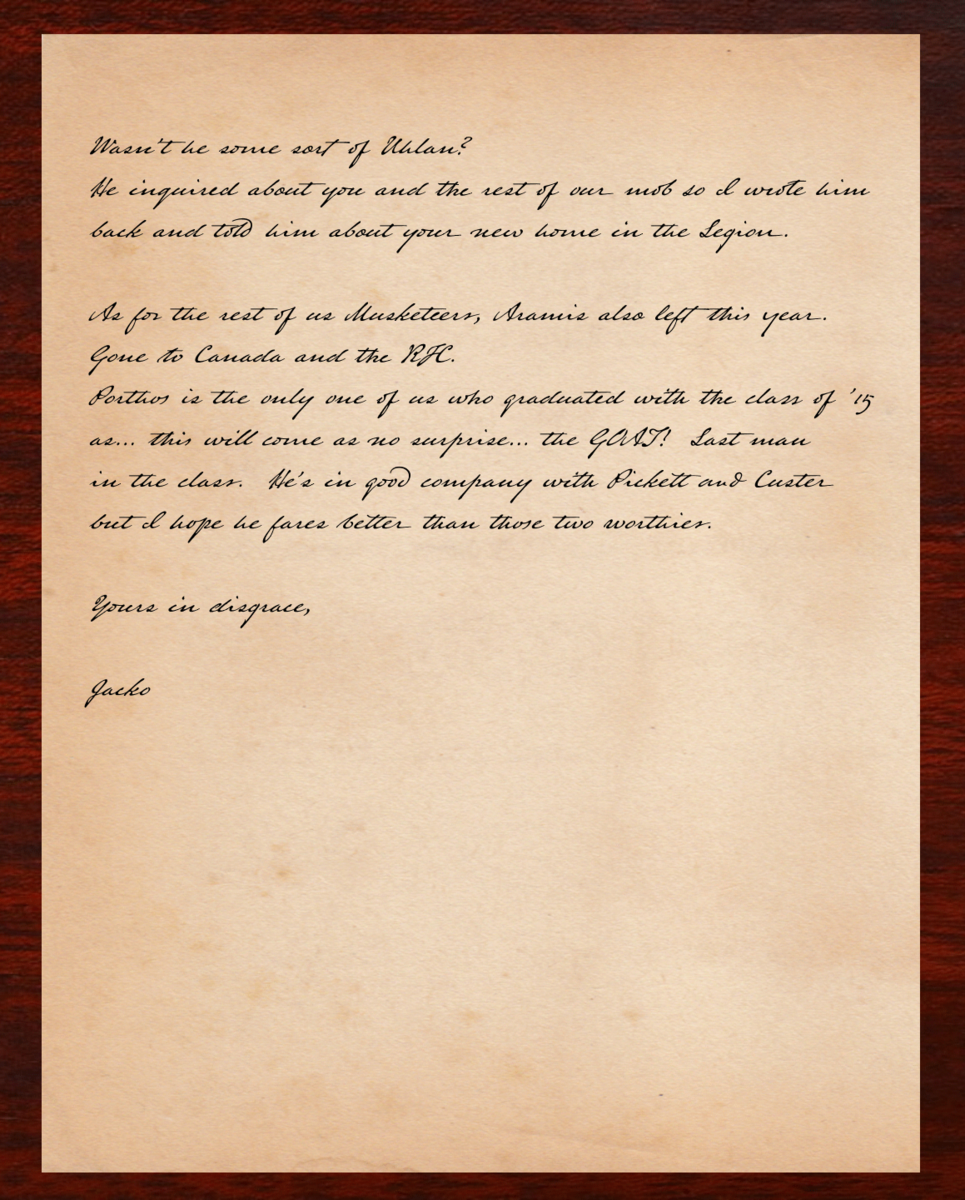 Wasn't he some sort of Uhlan?
He inquired about you and the rest of our mob so I wrote him
back and told him about your new home in the Legion.
As for the rest of us Musketeers, Aramis also left this year.
Gone to Canada and the RFC.
Porthos is the only one of us who graduated with the class of '15
as... this will come as no surprise... the GOAT! Last man
in the class. He's in good company with Pickett and Custer
but I hope he fares better than those two worthies.
Yours in disgrace,
Jacko